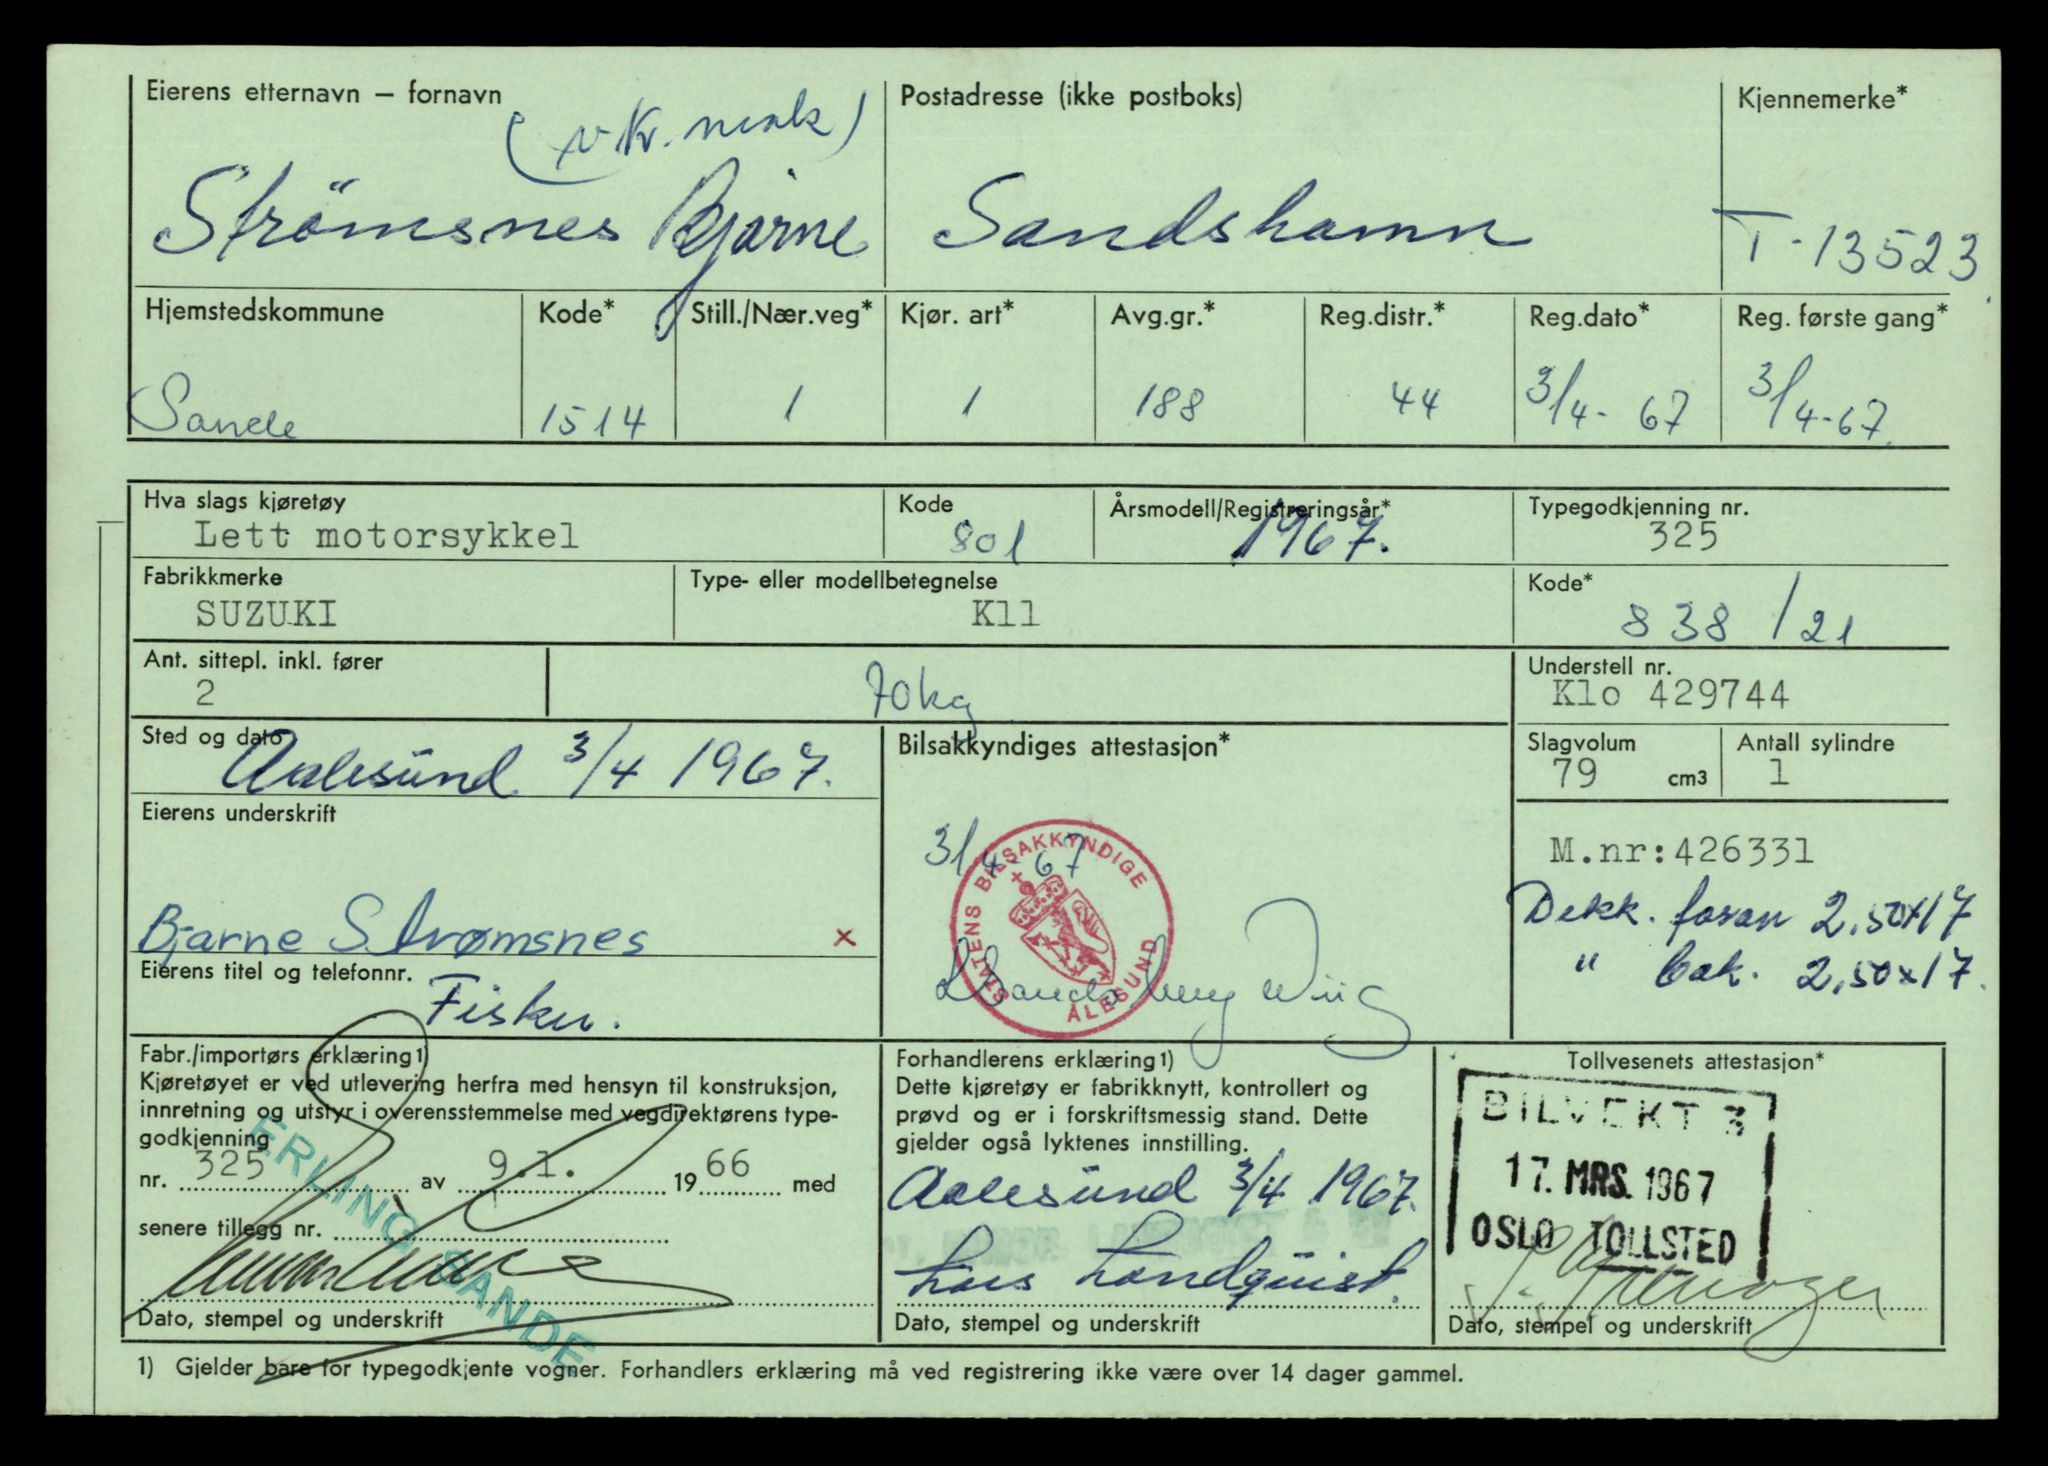 Eierens etternavn – fornavn
Postadresse (ikke postboks)
Kjennemerke*
Strömsnes Bjarne
Sandshamn
T-13523
Hjemstedskommune
Kode*
Still./Nær.veg*
Kjør. art*
Avg.gr.*
Reg.distr.*
Reg.dato*
Reg. første gang*
Sande
1514
1
1
188
44
3/4- 67
3/4-67
Hva slags kjøretøy
Kode
Årsmodell/Registreringsår*
Typegodkjenning nr.
Lett motorsykkel
801
1967.
325
Fabrikkmerke
Type- eller modellbetegnelse
Kode*
SUZUKI
K11
838 /21
Ant. sittepl. inkl. fører
Understell nr.
2
70kg
Klo 429744
Sted og dato
Bilsakkyndiges attestasjon*
Slagvolum
Antall sylindre
Aalesund 3/4 1967.
79 cm3
1
Eierens underskrift
3/4-67
STATENS BILSAKKYNDIGE
ÅLESUND
M.nr:426331
Dekk. foran 2,50x17
" bak. 2,50x17.
Bjarne Strømsnes x
Eierens titel og telefonnr.
Fisker.
Fabr./importørs erklæring1)
Kjøretøyet er ved utlevering herfra med hensyn til konstruksjon,
innretning og utstyr i overensstemmelse med vegdirektørens type-
godkjenning
nr. 325 av 9.1. 1966 med
senere tillegg nr.
ERLING SANDE
Dato, stempel og underskrift
Forhandlerens erklæring1)
Dette kjøretøy er fabrikknytt, kontrollert og
prøvd og er i forskriftsmessig stand. Dette
gjelder også lyktenes innstilling.
Aalesund 3/4 1967.
Lars Landquist.
Dato, stempel og underskrift
Tollvesenets attestasjon*
BILVEKT 3
17. MRS. 1967
OSLO TOLLSTED
Dato, stempel og underskrift
1) Gjelder bare for typegodkjente vogner. Forhandlers erklæring må ved registrering ikke være over 14 dager gammel.